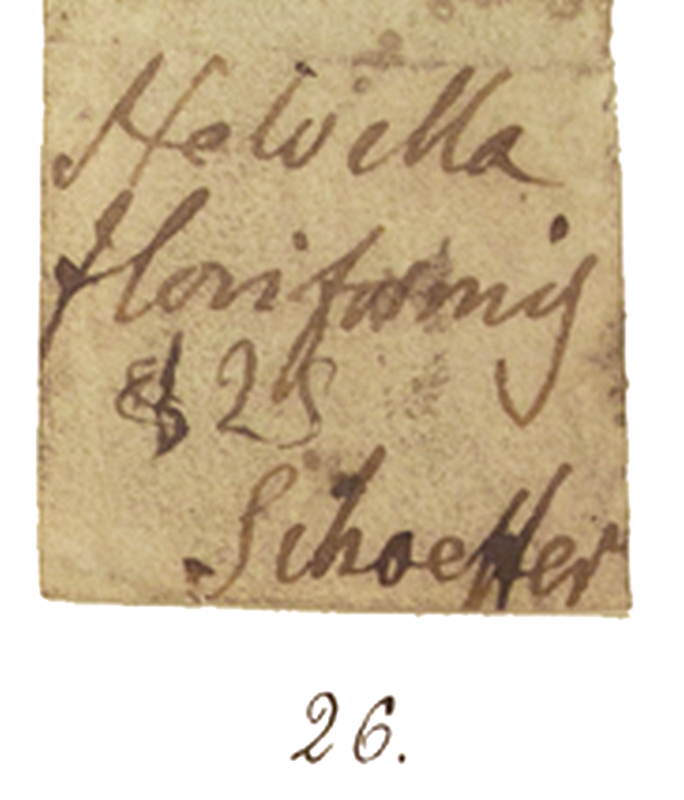 Helvella
floriformis
& 25
Schoeffer
26.